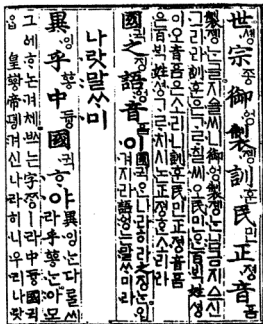 世솅宗조ᇰ御ᅌᅥᆼ製졩訓훈民민正져ᇰ音ᅙᅳᆷ
製졩는글지ᅀᅳᆯ씨니御ᅌᅥᆼ製졩는님금지ᅀᅳ샨
그리라訓훈은ᄀᆞᄅᆞ칠씨오民민ᄋᆞᆫ百ᄇᆡᆨ姓셔ᇰ
이오音ᅙᅳᆷ은소리니訓훈民민正져ᇰ音ᅙᅳᆷ
은百ᄇᆡᆨ姓셔ᇰᄀᆞᄅᆞ치시논正져ᇰᄒᆞᆫ소리라
國귁之징語ᅌᅥᆼ音ᅙᅳᆷ이
國귁ᄋᆞᆫ나라히라之징ᄂᆞᆫ입
겨지라語ᅌᅥᆼ는말ᄊᆞ미라
나랏말ᄊᆞ미
異잉乎ᅘᅩᆼ中듀ᇰ國귁ᄒᆞ야
異잉ᄂᆞᆫ다ᄅᆞᆯ씨
라乎ᅘᅩᆼᄂᆞᆫ아모
그ᅌᅦᄒᆞ논겨체ᄡᅳ는字ᄍᆞᆼㅣ라中듀ᇰ國귁
ᄋᆞᆫ皇ᅘᅪᇰ帝뎽겨신나라히니우리나랏